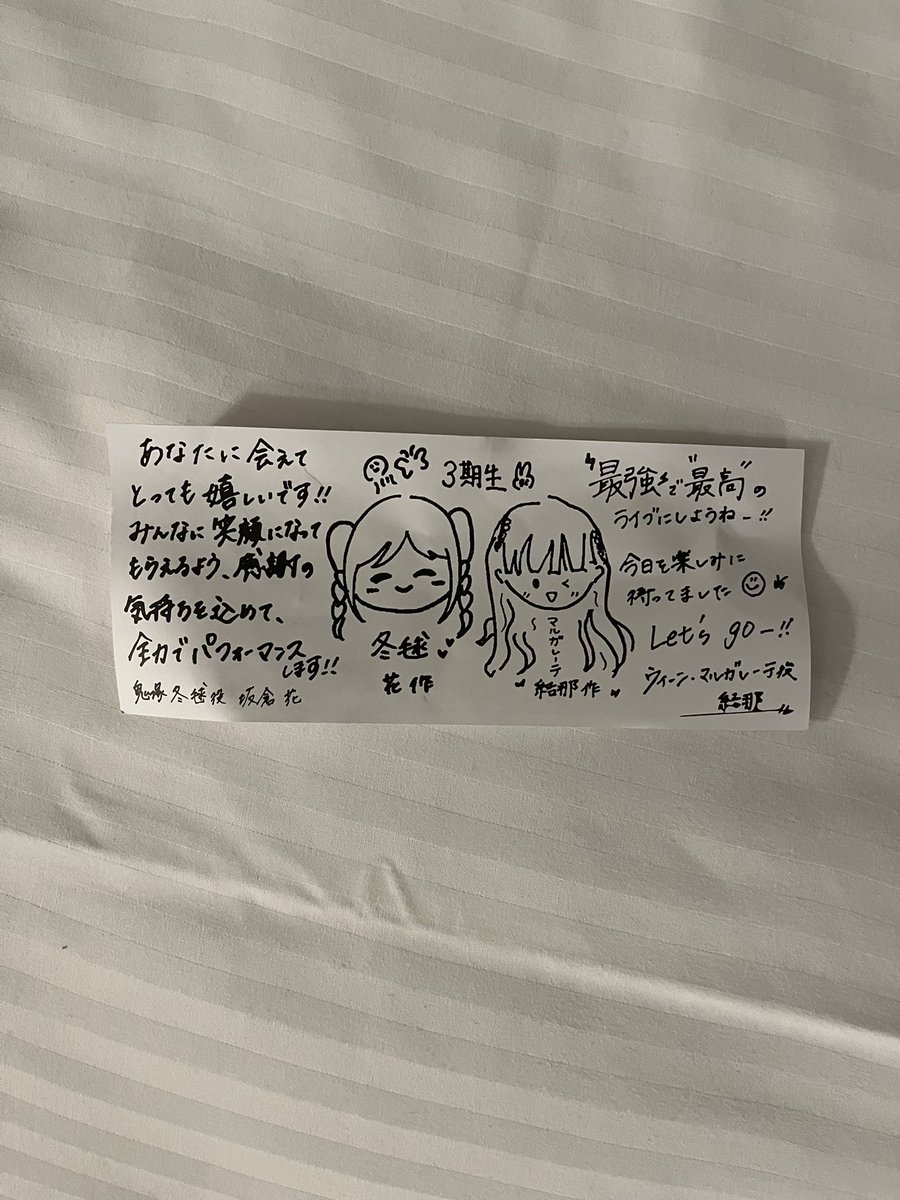 あなたに会えて
とっても嬉しいです!!
みんなに笑顔になって
もらえるよう、感謝の
気持ちを込めて、
全力でパフォーマンス
します!!
鬼塚冬毬役 坂倉 花
3期生
冬毬
花作
マルガレーテ
結那作
"最強"で"最高"の
ライブにしようねー!!
今日を楽しみに
待ってました
Let's goー!!
ウィーン・マルガレーテ役
結那